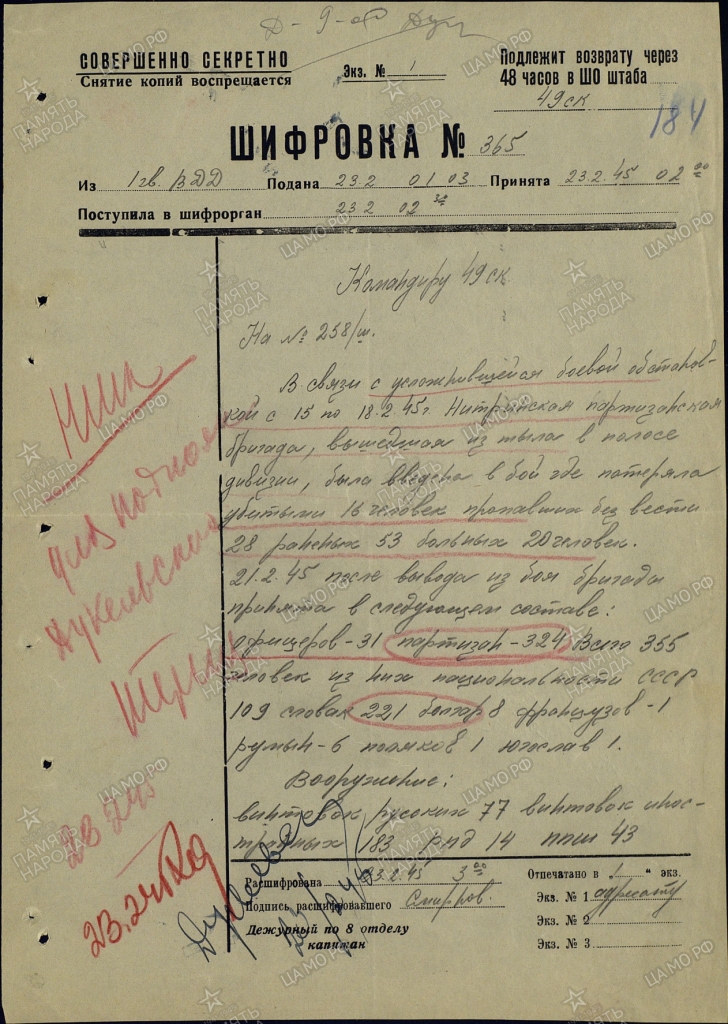 СОВЕРШЕННО СЕКРЕТНО
Снятие копий воспрещается
Экз. № 1
Подлежит возврату через
48 часов в ШО штаба
49 ск
184
ШИФРОВКА № 365
Из 1 гв. ВДД Подана 23.2 01 03 Принята 23.2.45 02 00
Поступила в шифрорган 23 2 02 30
Командиру 49 ск
На № 258/ш.
В связи с усложнившейся боевой обстанов-
кой с 15 по 18.2.45 г. Нитринская партизанская
бригада, вышедшая из тыла в полосе
дивизии, была введена в бой где потеряла
убитыми 16 человек пропавших без вести
28 раненых 53 больных 20 человек.
21.2.45 после вывода из боя бригады
принята в следующем составе:
офицеров-31 партизан-324 Всего 355
человек из них национальности СССР
109 словак 221 болгар 8 французов-1
румын-6 поляков 1 югослав 1.
Вооружение:
винтовок русских 77 винтовок инос-
транных 183 рпд 14 ппш 43
Расшифрована 23.2.45 3 00
Подпись расшифровавшего Смирнов.
Дежурный по 8 отделу
капитан
Отпечатано в 1 " экз.
Экз. № 1 адресату
Экз. № 2
Экз. № 3
НШ
для
23.2
ПАМЯТЬ НАРОДА
ЦАМО.РФ